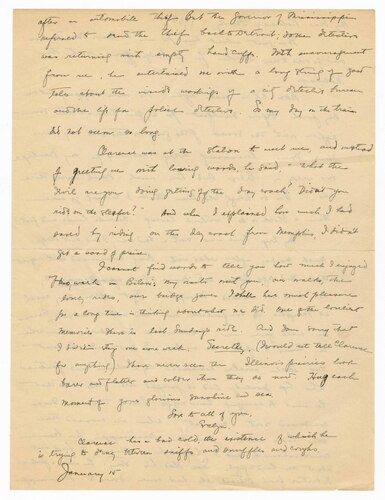 after an automobile thief but the Governor of Mississippi
refused to send the thief back to Detroit, so our detective
was returning with empty handcuffs. With encouragement
from me, he entertained me with a long string of good
tales about the inside workings of a city detective bureau
and the life of a police detective. So my day on the train
did not seem so long.
Clarence was at the station to meet me, and instead
of greeting me with loving words, he said - "What the
devil are you doing getting off the day coach? Didn't you
ride on the sleeper?" And when I explained how much I had
saved by riding on the day coach from Memphis, I didn't
get a word of praise.
I cannot find words to tell you how much I enjoyed
the week in Biloxi. My visits with you, our walks, the
rides, our bridge games. I shall have much pleasure
for a long time in thinking about what we did. One of the loveliest
memories there is last Sunday's ride. And I'm sorry that
I didn't stay one more week. Secretly, (I would not tell Clarence
for anything) I have never seen the Illinois prairies look
barer and flatter and colder than they do now. Hug each
moment for your glorious sunshine and sea.
Love to all of you,
Evelyn
Clarence has a bad cold the existence of which he
is trying to deny between sniffs and snuffles and coughs
January 15